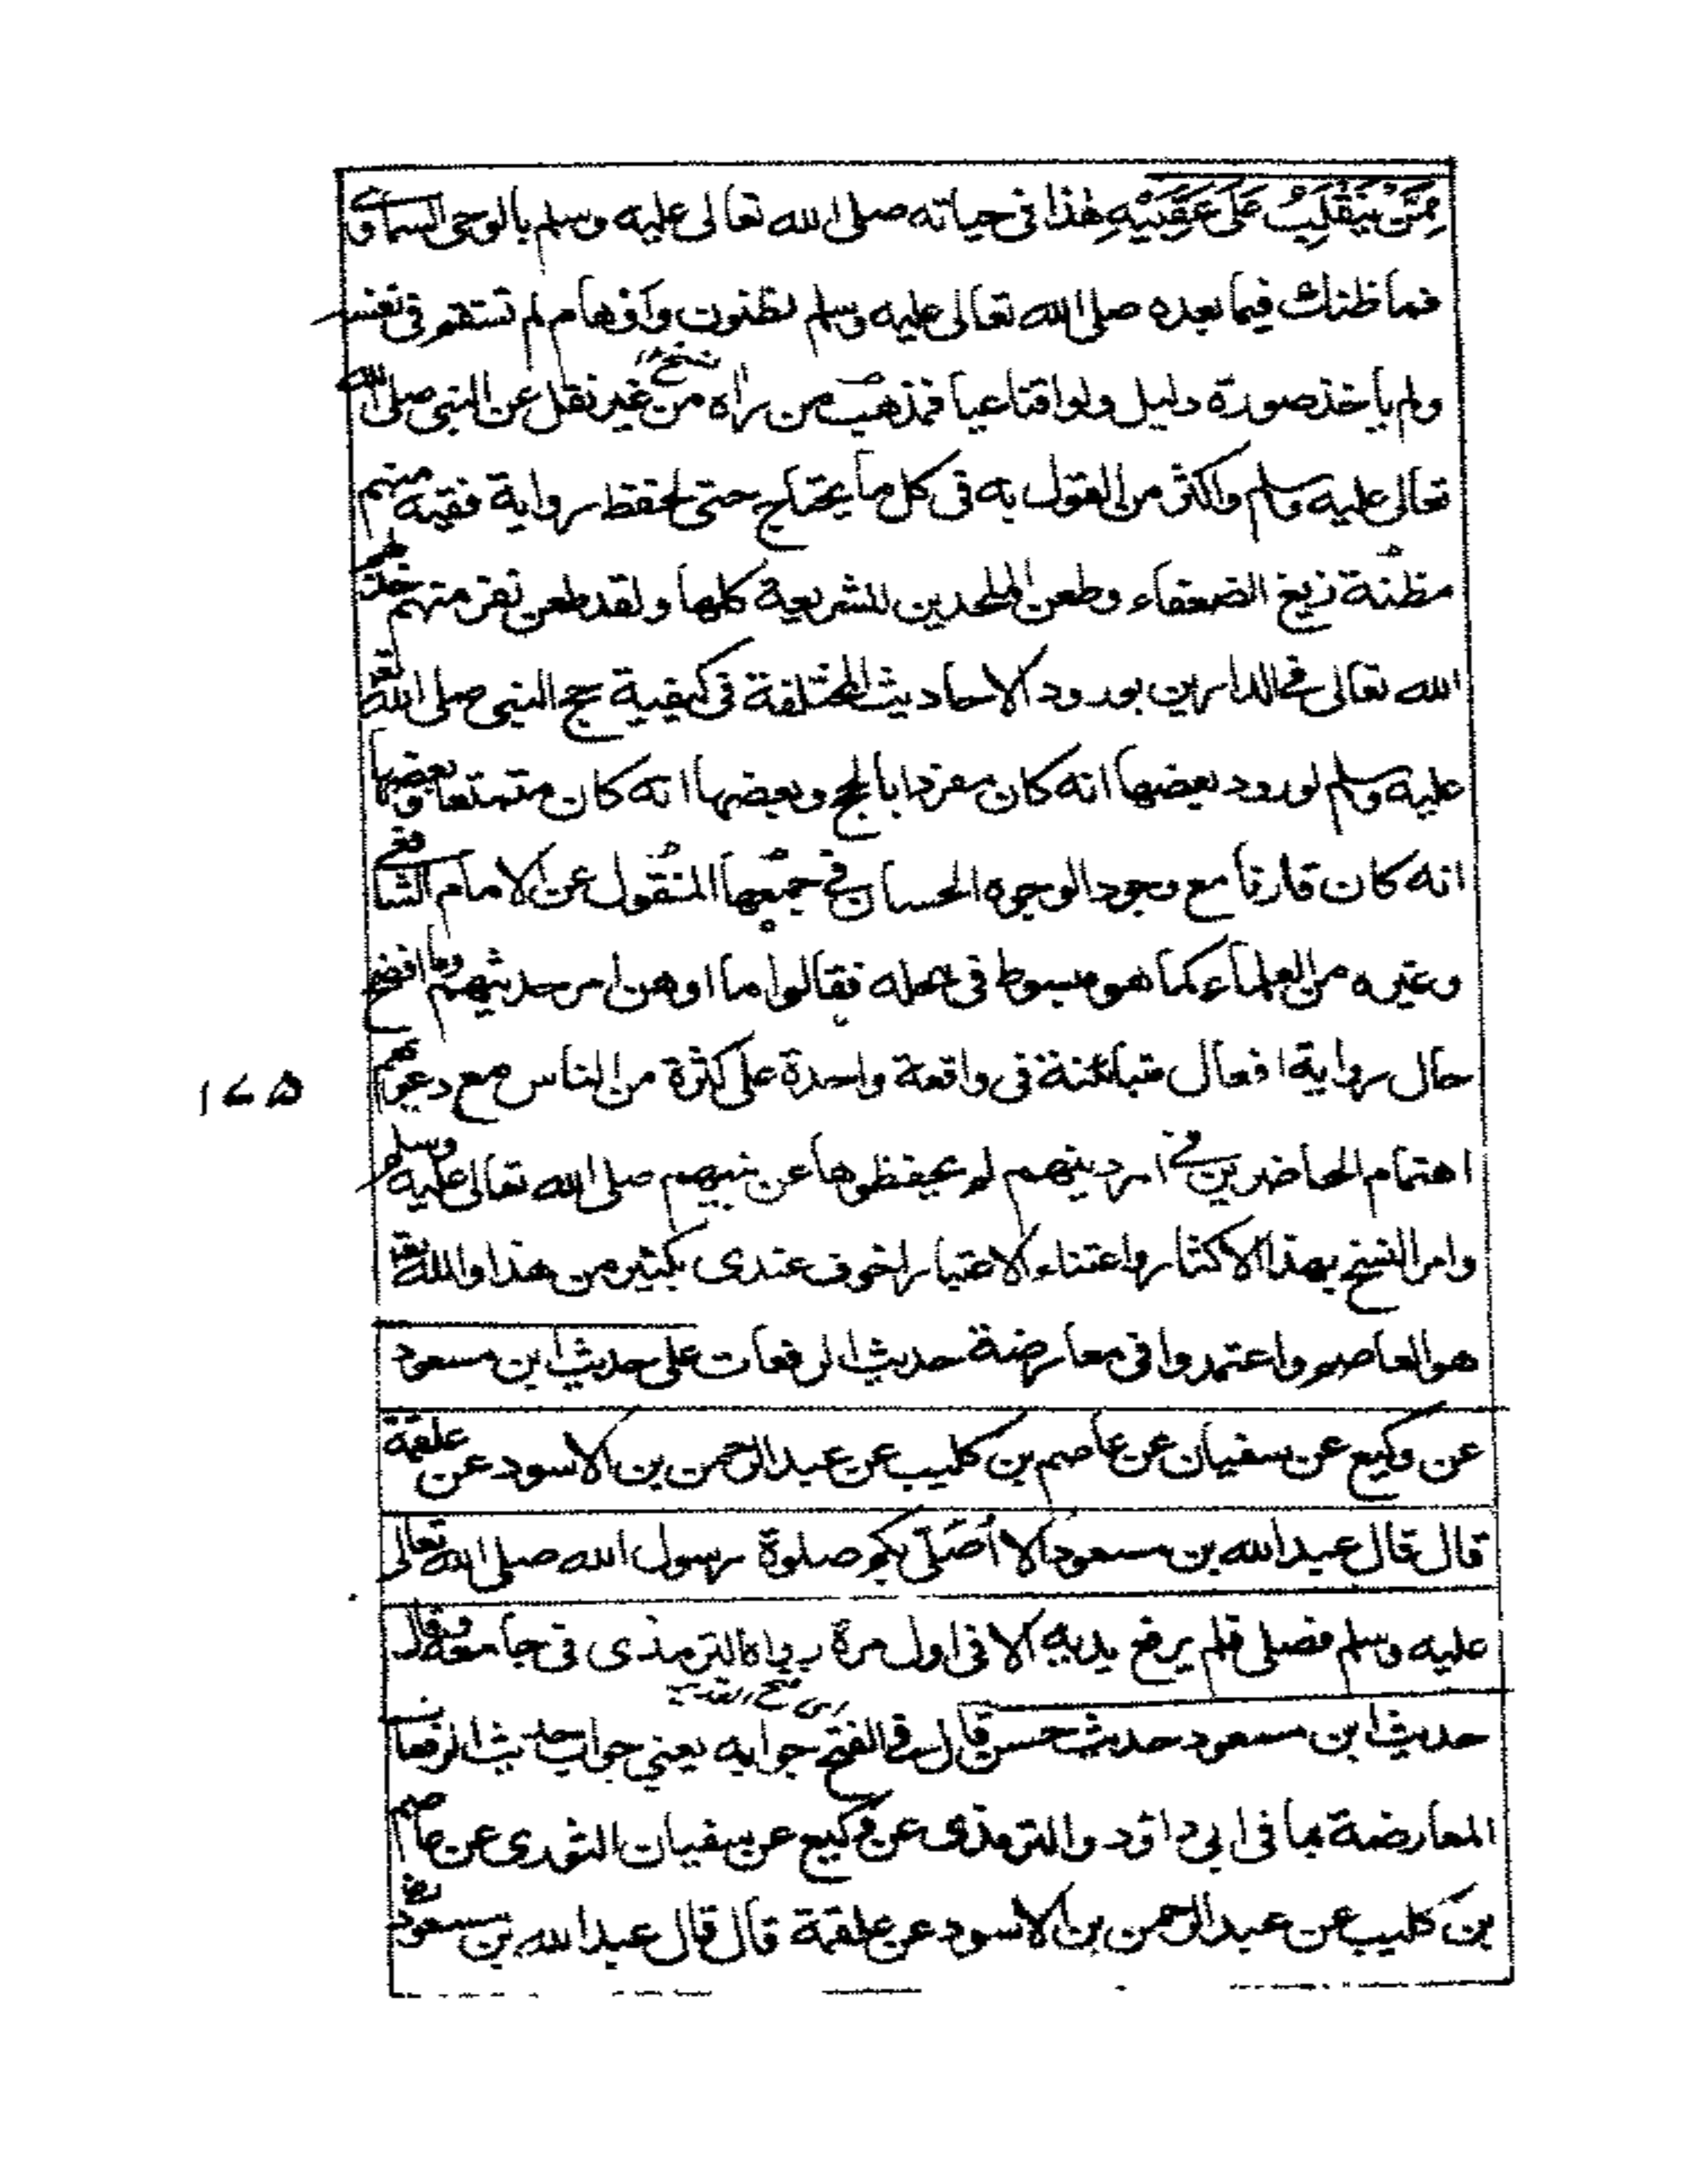 مِمَّنْ يَنْقَلِبُ عَلَى عَقِبَيْهِ هٰذا فى حياته صلى الله تعالى عليه وسلم بالوحى السماوى
فما ظنك فيما بعده صلى الله تعالى عليه وسلم بظنون وافهام لم تستقم فى نفس
ولم يأخذ صورة دليل ولو اقناعيا فمذهب من راٰه من غير نقل عن النبى صلى الله
تعالى عليه وسلم واكثر من القول به فى كل ما يحتاج حتى لحفظ رواية فقيه منهم
مظنة زيغ الضعفاء وطعن الملحدين للشريعة كلها ولقد طعن نفر منهم خذلهم
الله تعالى فى الدارين بورود الاحاديث المختلفة فى كيفية حج النبى صلى الله تعا
عليه وسلم لورود بعضها انه كان مفردا بالحج وبعضها انه كان متمتعا وبعضها
انه كان قارنا مع وجود الوجوه الحسان فى جمعها المنقول عن الامام الشافعى
وغيره من العلماء كما هو مبسوط فى محله فقالوا ما اوهن امر حديثهم وما افضح
حال رواية افعال متبائنة فى واقعة واحدة على كثرة من الناس مع دعوىهم
١٦٥
اهتمام الحاضرين فى امر دينهم لم يحفظوها عن نبيهم صلى الله تعالى عليه وسلم
وامر النسخ بهذا الاكثار واعتناء الاعتبار اخوف عندى بكثير من هذا والله تعا
هو العاصم واعتمدوا فى معارضة حديث الرفعات على حديث ابن مسعود
عن وكيع عن سفيان عن عاصم بن كليب عن عبد الرحمن بن الاسود عن علقمة
قال قال عبد الله بن مسعود الا أصَلّى بكم صلوة رسول الله صلى الله تعالى
عليه وسلم فصلى فلم يرفع يديه الا فى اول مرة رواه الترمذى فى جامعه وقال
حديث ابن مسعود حديث حسن قال فى الفتح جوابه يعني جواب حديث الرفعات
المعارضة بما فى ابى داؤد والترمذى عن وكيع عن سفيان الثورى عن عاصم
بن كليب عن عبد الرحمن بن الاسود عن علقمة قال قال عبد الله بن مسعود رض